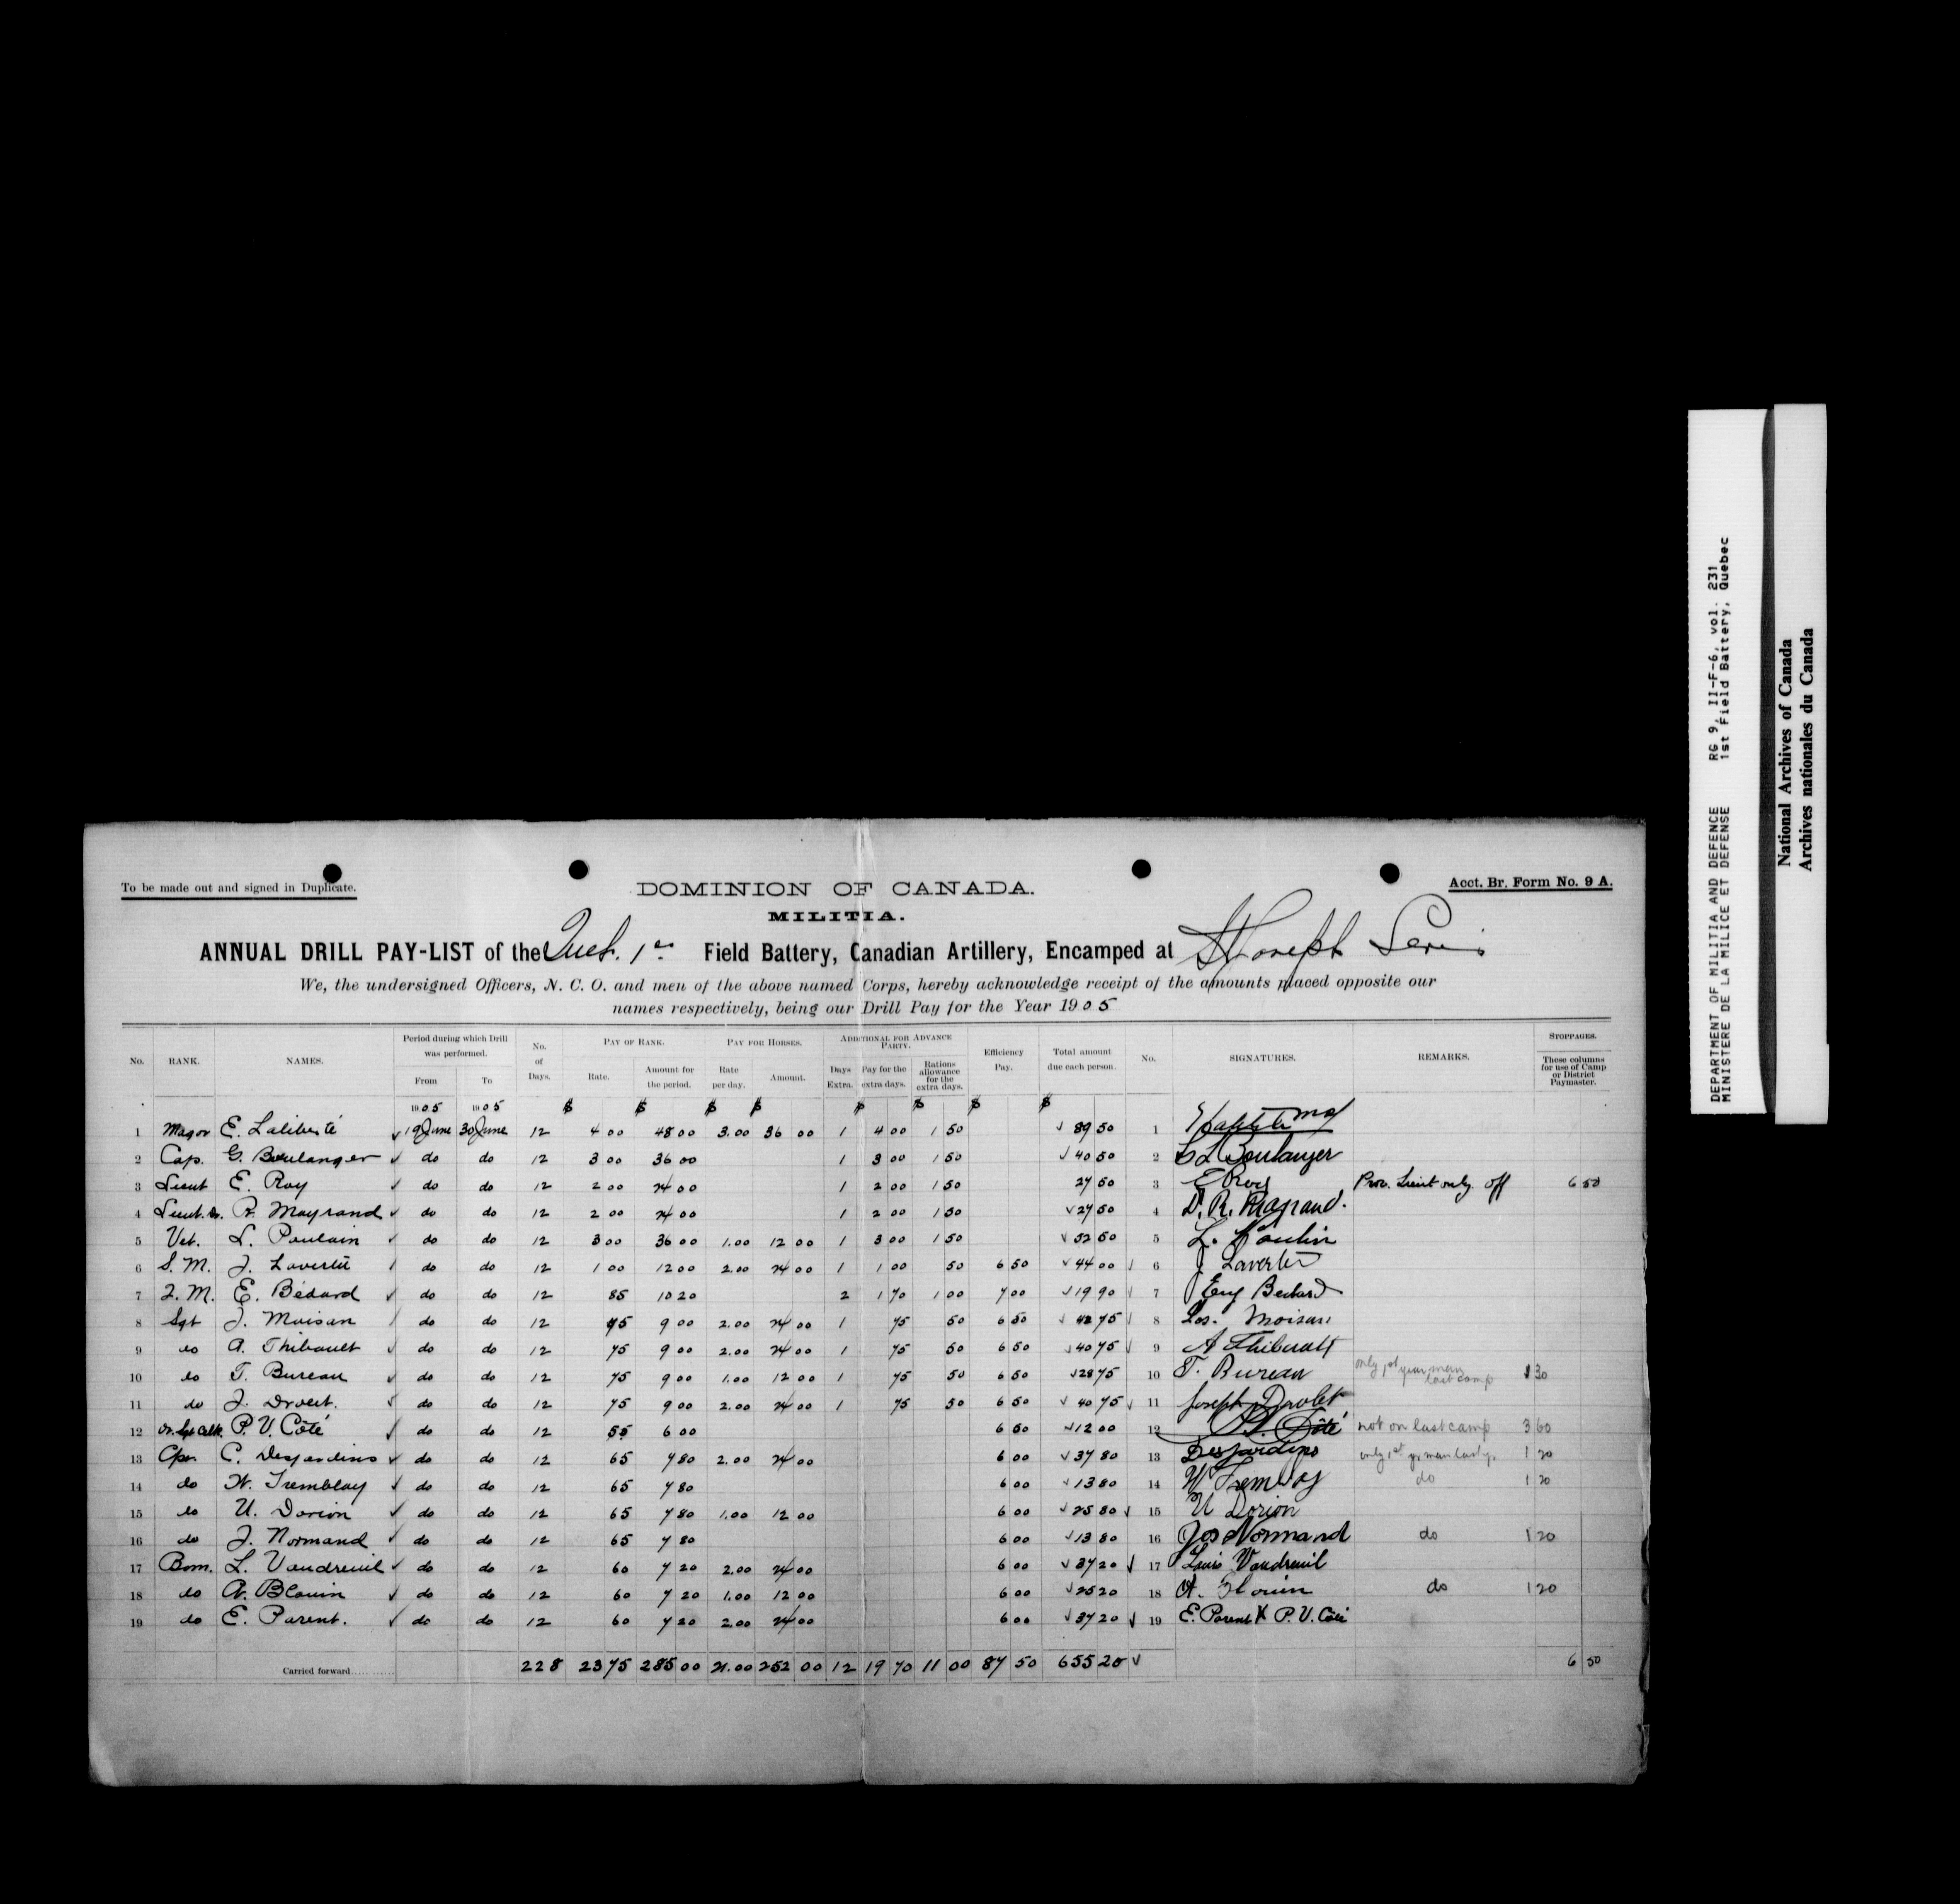 To be made out and signed in Duplicate.
DOMINION OF CANADA.
Acct. Br. Form No. 9 A.
MILITIA.
ANNUAL DRILL PAY-LIST of the Queb. 1st Field Battery, Canadian Artillery, Encamped at St Joseph Levis
We, the undersigned Officers, N. C. O. and men of the above named Corps, hereby acknowledge receipt of the amounts placed opposite our
names respectively, being our Drill Pay for the Year 1905
No. RANK. NAMES. Period during which Drill was performed. From To No. of Days. PAY OF RANK. Rate. Amount for the period. PAY FOR HORSES. Rate per day. Amount. ADDITIONAL FOR ADVANCE PARTY. Days Extra. Pay for the extra days. Rations allowance for the extra days. Efficiency Pay. Total amount due each person. No. SIGNATURES. REMARKS. STOPPAGES. These columns for use of Camp or District Paymaster.
1905 1905 $ $ $ $ $ $ $ $
1 Major E. Laliberté 19 June 30 June 12 4 00 48 00 3.00 36 00 1 4 00 1 50 89 50 1
2 Cap. G. Boulanger do do 12 3 00 36 00 1 3 00 1 50 40 50 2 Boulanger
3 Lieut E. Roy do do 12 2 00 24 00 1 2 00 1 50 27 50 3 E Roy Prov. Lieut only. off 6 50
4 Lieut. R. Mayrand do do 12 2 00 24 00 1 2 00 1 50 27 50 4 D. R. Mayrand.
5 Vet. L. Poulain do do 12 3 00 36 00 1.00 12 00 1 3 00 1 50 52 50 5 L. Poulin
6 S. M. J. Lavertu do do 12 1 00 12 00 2.00 24 00 1 1 00 50 6 50 44 00 6 J Lavertu
7 Q. M. E. Bédard do do 12 85 10 20 2 1 70 1 00 7 00 19 90 7 Eug Bedard
8 Sgt J. Moisan do do 12 75 9 00 2.00 24 00 1 75 50 6 50 40 75 8 Jos. Moisan
9 do A. Thibault do do 12 75 9 00 2.00 24 00 1 75 50 6 50 40 75 9 A Thibault
10 do T. Bureau do do 12 75 9 00 1.00 12 00 1 75 50 6 50 28 75 10 T. Bureau only 1st year man last camp 1 30
11 do J. Drolet. do do 12 75 9 00 2.00 24 00 1 75 50 6 50 40 75 11 Joseph Drolet
12 P. V. Côté do do 12 55 6 00 6 00 12 00 12 P. V. Côté not on last camp 3 60
13 Cpr. C. Desjardins do do 12 65 7 80 2.00 24 00 6 00 37 80 13 Desjardins only 1st yr man last yr. 1 20
14 do W. Tremblay do do 12 65 7 80 6 00 13 80 14 W Tremblay do 1 20
15 do U. Dorion do do 12 65 7 80 1.00 12 00 6 00 25 80 15 U Dorion
16 do J. Normand do do 12 65 7 80 6 00 13 80 16 Jos Normand do 1 20
17 Bom. L. Vaudreuil do do 12 60 7 20 2.00 24 00 6 00 37 20 17 Louis Vaudreuil
18 do A. Blouin do do 12 60 7 20 1.00 12 00 6 00 25 20 18 A. Blouin do 1 20
19 do E. Parent. do do 12 60 7 20 2.00 24 00 6 00 37 20 19 E. Parent X P. V. Côté
Carried forward 228 23 75 285 00 21.00 252 00 12 19 70 11 00 87 50 655 20 6 50
DEPARTMENT OF MILITIA AND DEFENCE RG 9, II-F-6, vol. 231
MINISTERE DE LA MILICE ET DEFENSE 1st Field Battery, Quebec
National Archives of Canada
Archives nationales du Canada